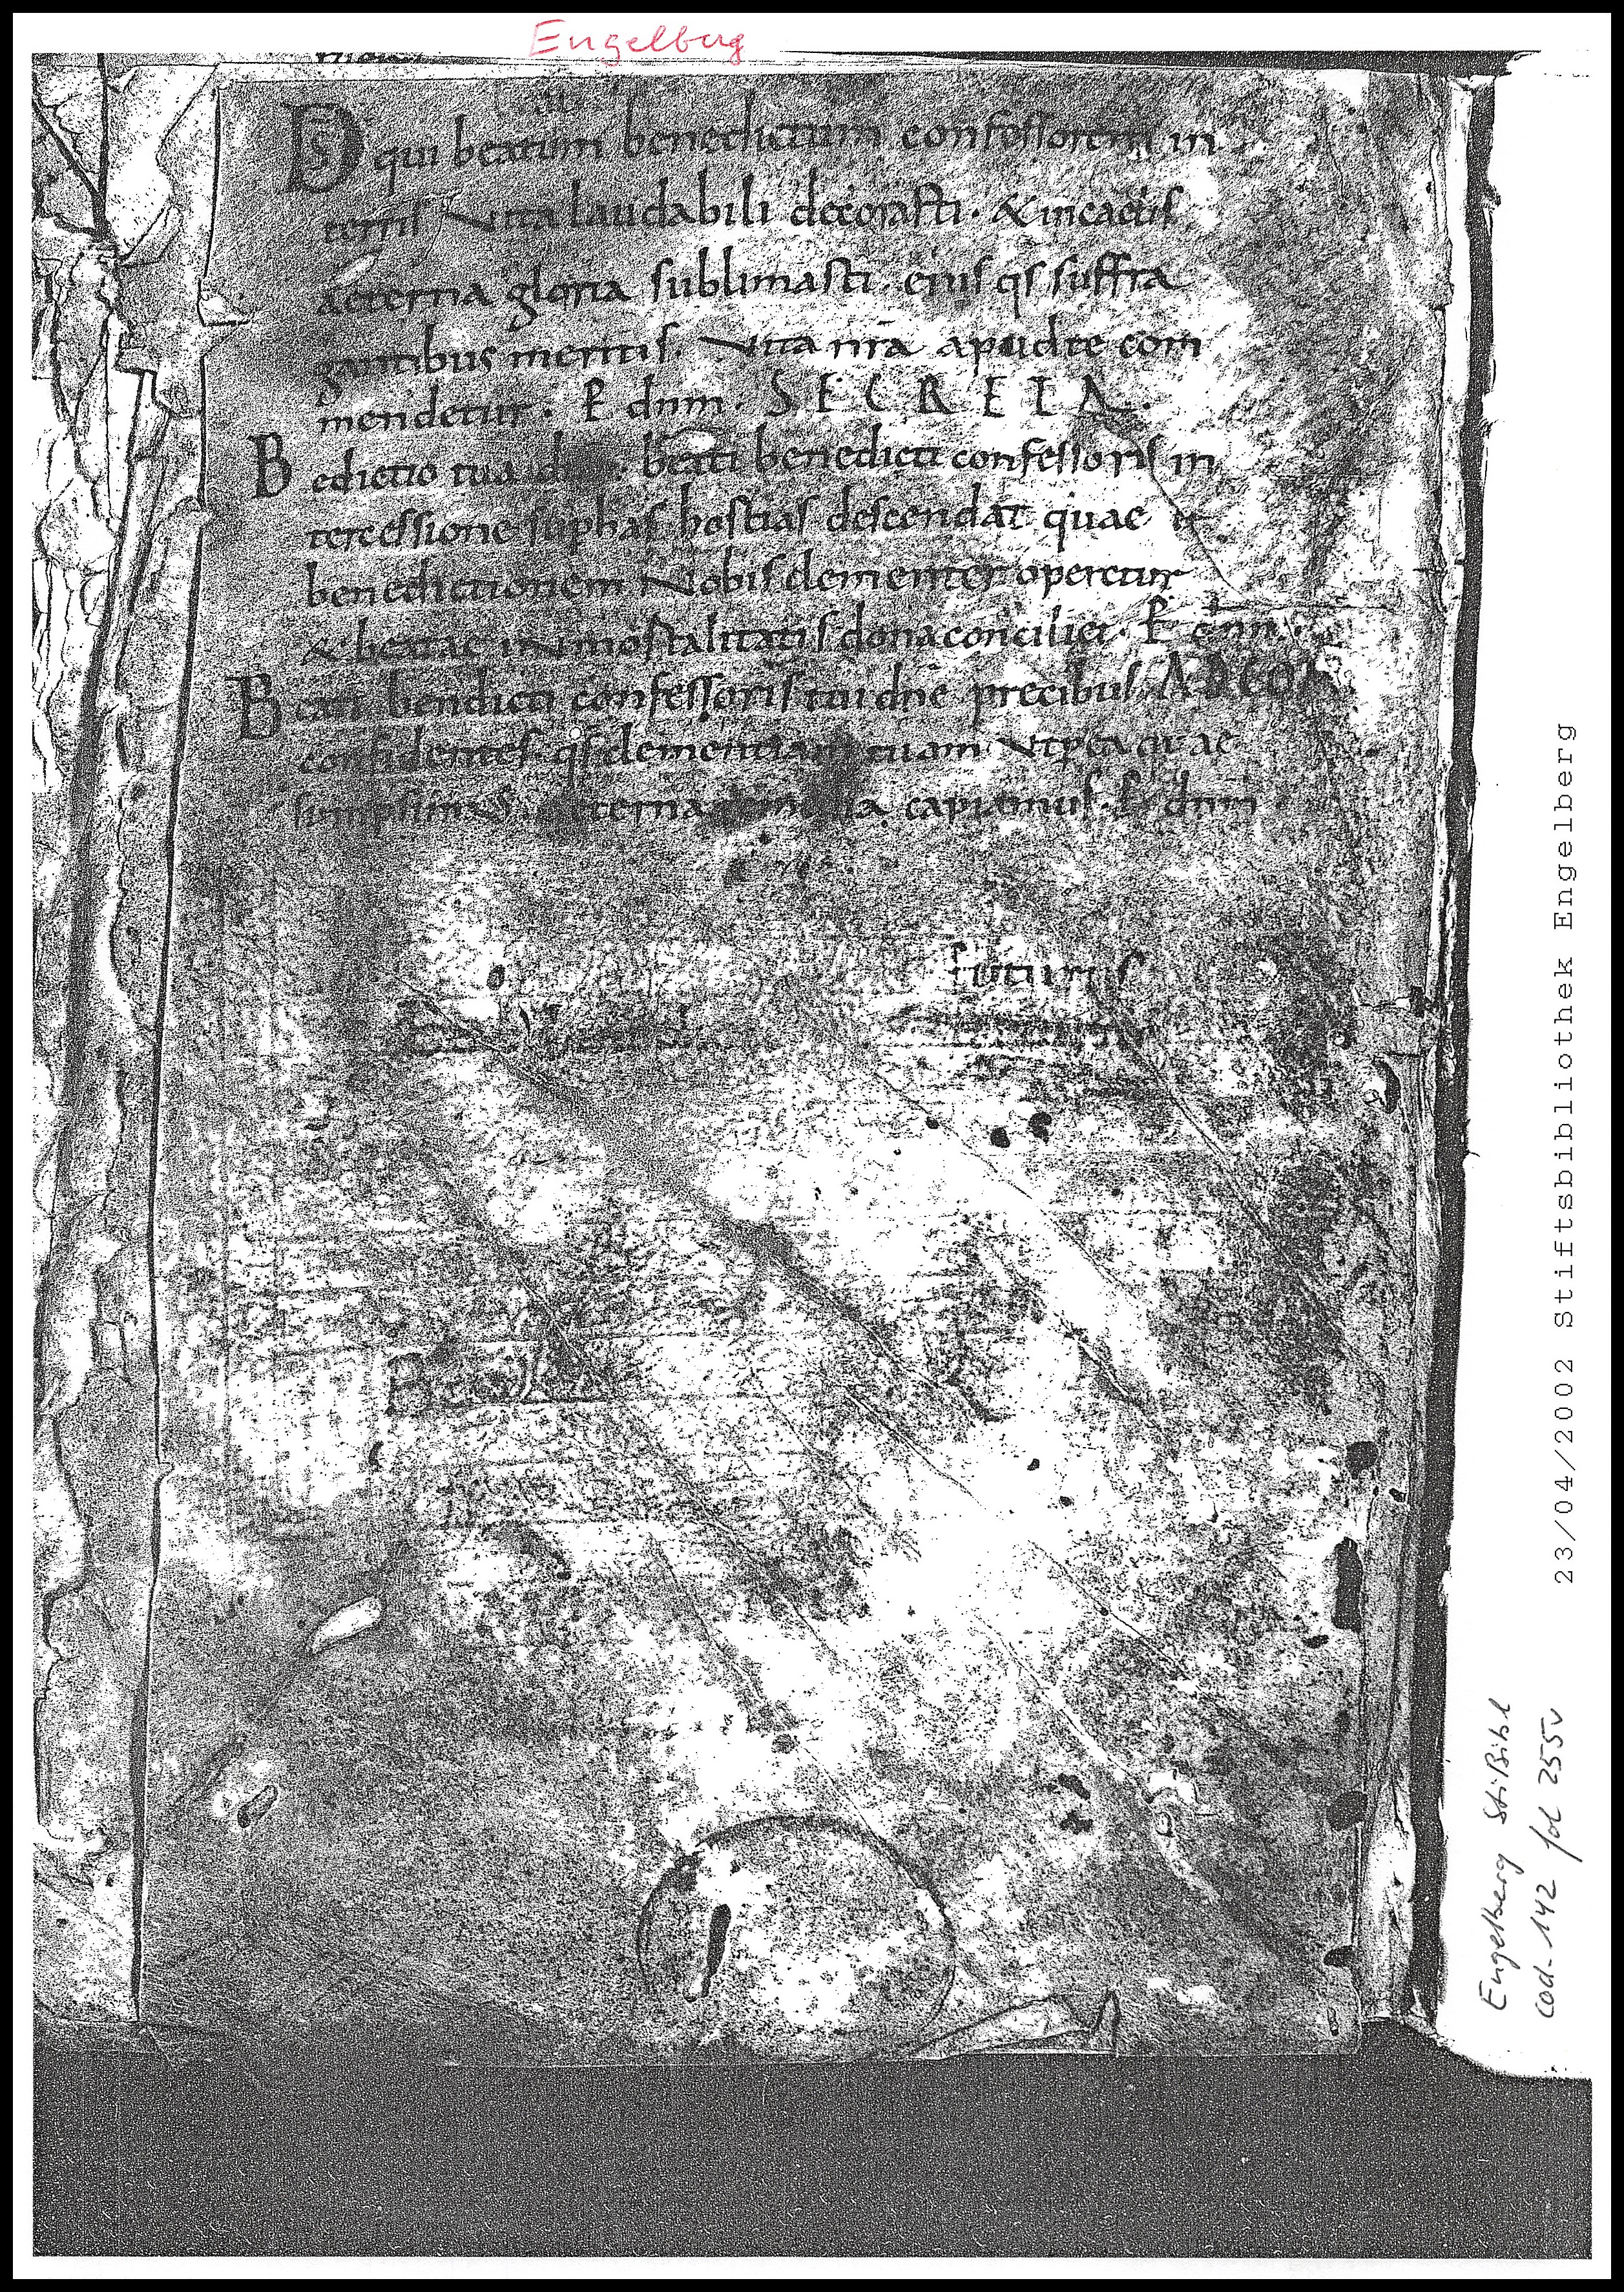 Engelberg
D̅S̅ qui beatum benedictum confessorem in
terris vita laudabili decorasti · & in caelis
aeterna gloria sublimasti · eius q̅s suffra
gantibus meritis · vita nr̅a apud te com
mendetur · P̲ dnm̅ · SECRETA ·
B edictio tua · beati benedicti confessoris in
tercessione sup has hostias descendat quae &
benedictionem Nobis clementer operetur
& beatae inmortalitatis dona conciliet · P̲ dnm̅ ·
B eati bendicti confessoris tui dn̅e precibus AD CO
confidentes q̅s clementiam tuam vt p̲ ea quae
sumpsimus · aeterna capiamus · P̲ dnm̅
futurus
23/04/2002 Stiftsbibliothek Engelberg
Engelberg StiBibl
cod. 142 fol 255v